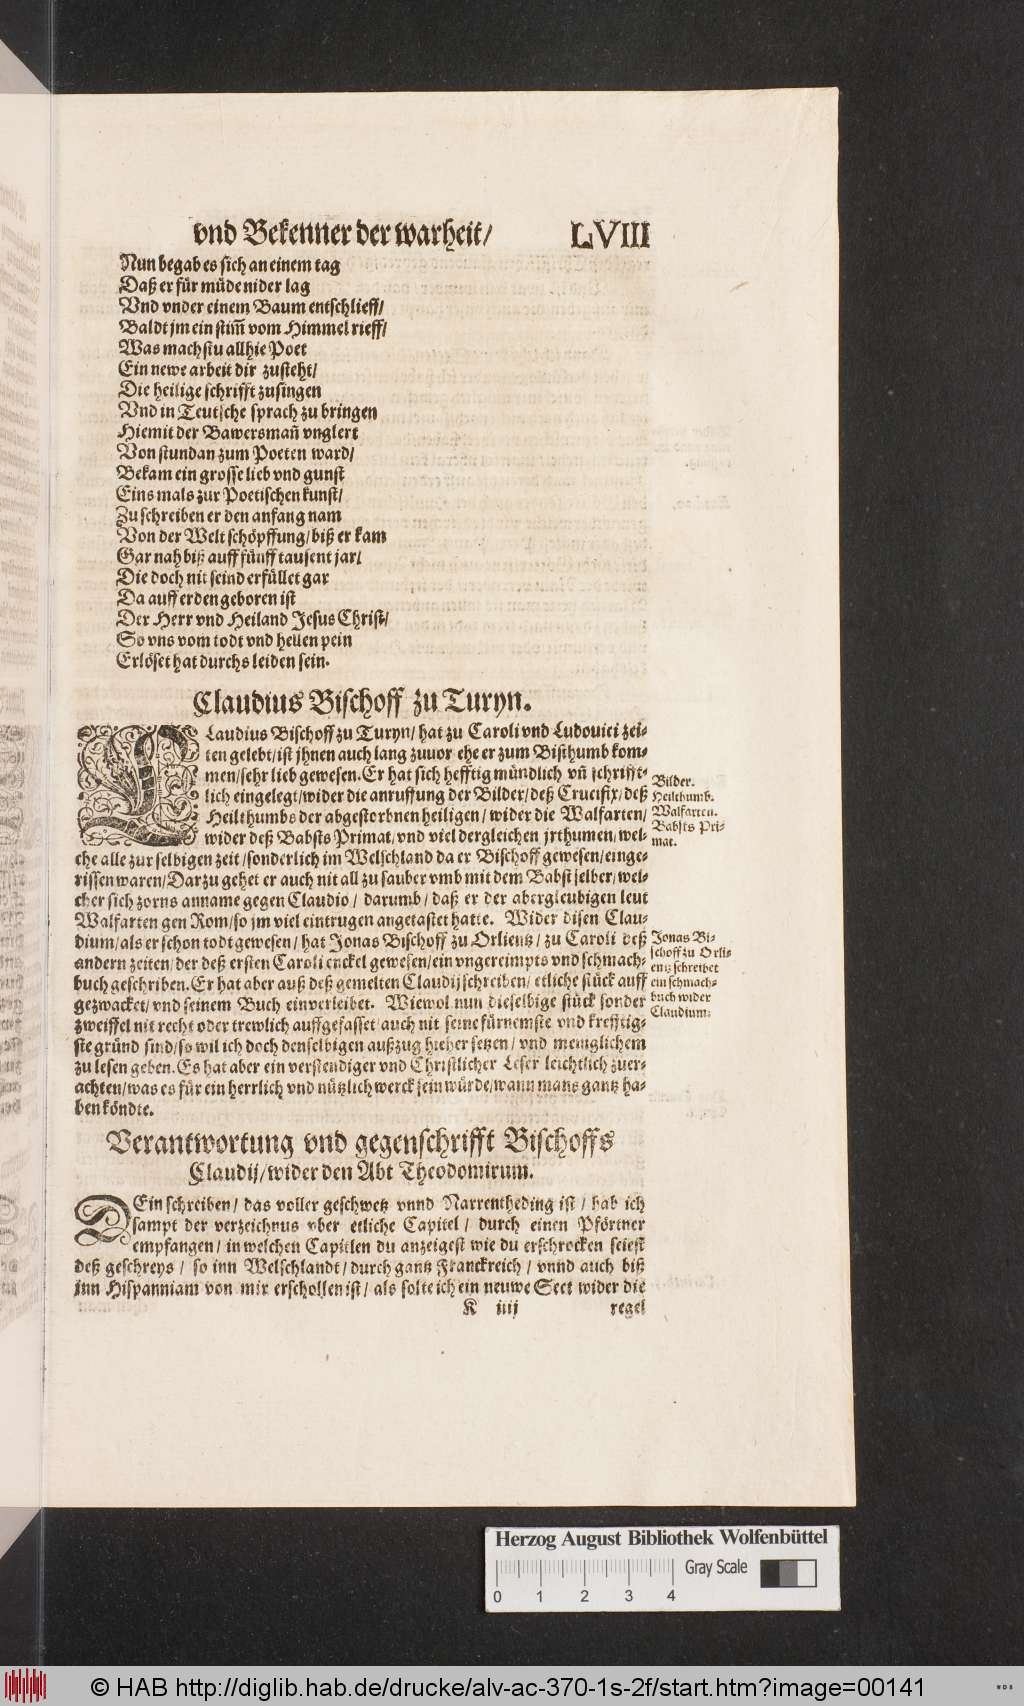 vnd Bekenner der warheit/ LVIII
Nun begab es sich an einem tag
Daß er für müde nider lag
Vnd vnder einem Baum entschlieff/
Baldt jm ein stim̃ vom Himmel rieff/
Was machstu allhie Poet
Ein newe arbeit dir zusteht/
Die heilige schrifft zusingen
Vnd in Teutsche sprach zu bringen
Hiemit der Bawersmañ vnglert
Von stundan zum Poeten ward/
Bekam ein grosse lieb vnd gunst
Eins mals zur Poetischen kunst/
Zu schreiben er den anfang nam
Von der Welt schöpffung/ biß er kam
Gar nah biß auff fünff tausent jar/
Die doch nit seind erfüllet gar
Da auff erden geboren ist
Der Herr vnd Heiland Jesus Christ/
So vns vom todt vnd hellen pein
Erlöset hat durchs leiden sein.
Claudius Bischoff zu Turyn.
CLaudius Bischoff zu Turyn/ hat zu Caroli vnd Ludouici zei-
ten gelebt/ ist jhnen auch lang zuuor ehe er zum Bisthumb kom-
men/ sehr lieb gewesen. Er hat sich hefftig mündlich vñ schrifft-
lich eingelegt/ wider die anruffung der Bilder/ deß Crucifix/ deß
Heilthumbs der abgestorbnen heiligen/ wider die Walfarten/
wider deß Babsts Primat/ vnd viel dergleichen jrthumen/ wel-
che alle zur selbigen zeit/ sonderlich im Welschland da er Bischoff gewesen/ einge-
rissen waren/ Darzu gehet er auch nit all zu sauber vmb mit dem Babst selber/ wel-
cher sich zorns anname gegen Claudio/ darumb/ daß er der abergleubigen leut
Walfarten gen Rom/ so jm viel eintrugen angetastet hatte. Wider disen Clau-
dium/ als er schon todt gewesen/ hat Jonas Bischoff zu Orlientz/ zu Caroli deß
andern zeiten/ der deß ersten Caroli enckel gewesen/ ein vngereimpts vnd schmach-
buch geschriben. Er hat aber auß deß gemelten Claudij schreiben/ etliche stück auff
gezwacket/ vnd seinem Buch einverleibet. Wiewol nun dieselbige stück sonder
zweiffel nit recht oder trewlich auffgefasset/ auch nit seine fürnemste vnd krefftig-
ste gründ sind/ so wil ich doch denselbigen außzug hieher setzen/ vnd meniglichem
zu lesen geben. Es hat aber ein verstendiger vnd Christlicher Leser leichtlich zuer-
achten/ was es für ein herrlich vnd nützlich werck sein würde/ wann mans gantz ha-
ben köndte.
Bilder.
Heilthumb.
Walfarten.
Babsts Pri-
mat.
Jonas Bi-
schoff zu Orli-
entz schreibet
ein schmach-
buch wider
Claudium.
Verantwortung vnd gegenschrifft Bischoffs
Claudij/ wider den Abt Theodomirum.
DEin schreiben/ das voller geschwetz vnnd Narrentheding ist/ hab ich
sampt der verzeichnus vber etliche Capitel/ durch einen Pförtner
empfangen/ in welchen Capitlen du anzeigest wie du erschrocken seiest
deß geschreys/ so inn Welschlandt/ durch gantz Franckreich/ vnnd auch biß
inn Hispanniam von mir erschollen ist/ als solte ich ein neuwe Sect wider die
K iiij regel
Herzog August Bibliothek Wolfenbüttel
Gray Scale
0 1 2 3 4
© HAB http://diglib.hab.de/drucke/alv-ac-370-1s-2f/start.htm?image=00141